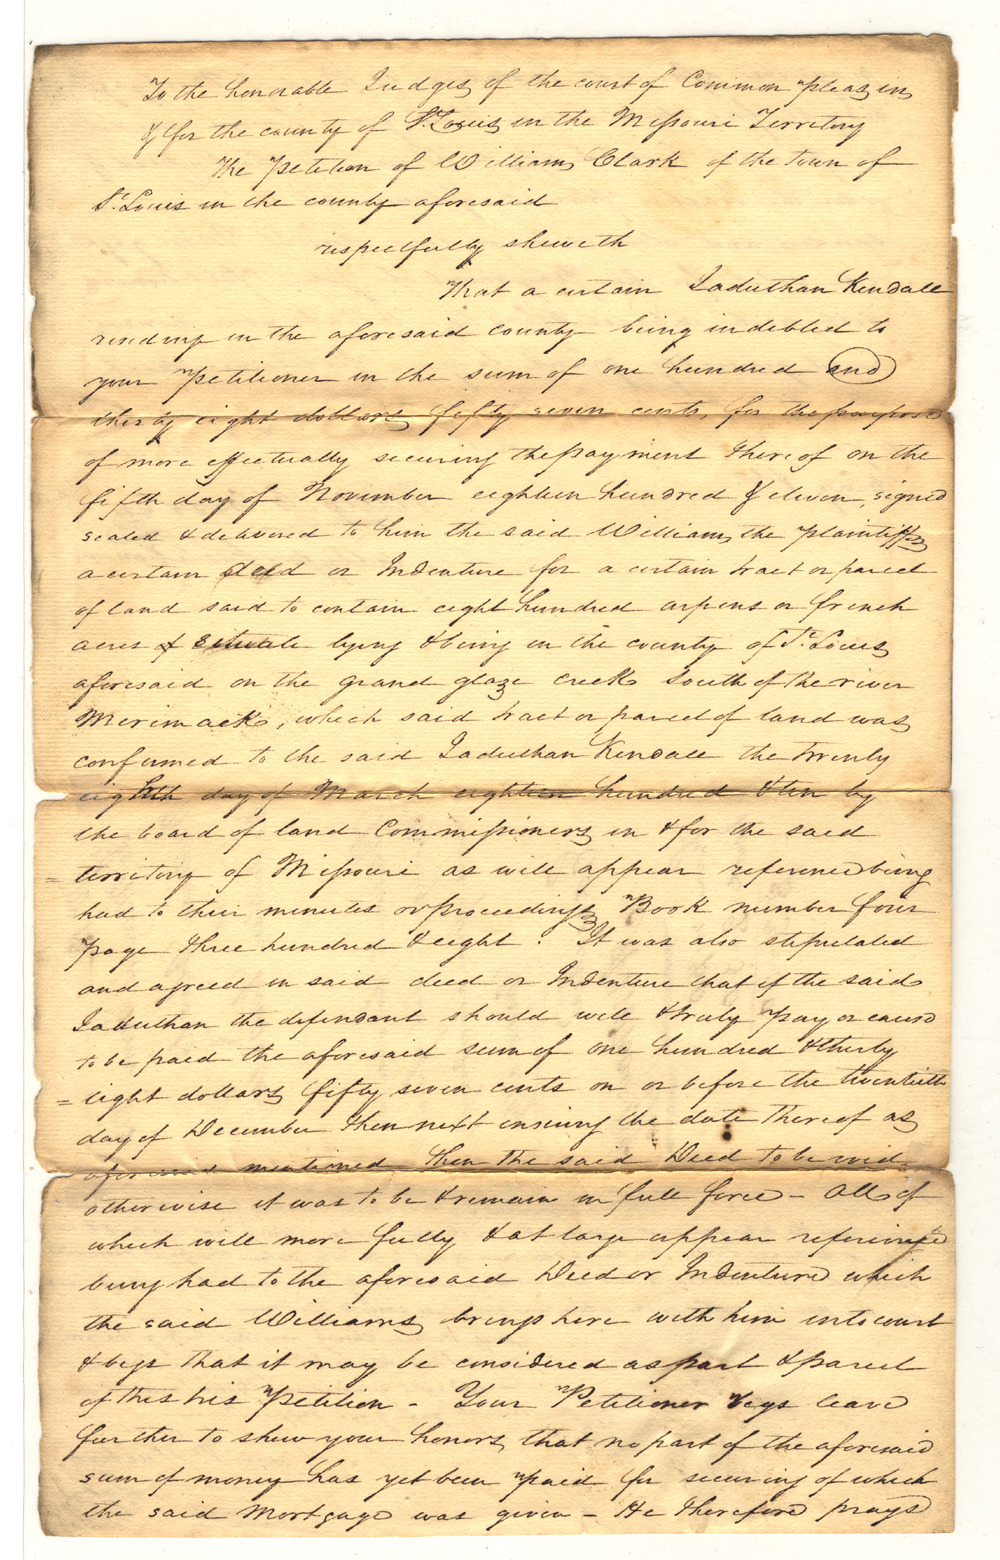 To the honorable Judges of the court of Common pleas in
& for the county of St. Louis in the Missouri Territory
The Petition of William Clark of the Town of
St. Louis in the county aforesaid
respectfully sheweth
That a certain Jaduthan Kendall
residing in the aforesaid county being indebted to
your Petitioner in the sum of one hundred and
thirty eight dollars fifty seven cents, for the purpose
of more effectually securing the payment thereof on the
fifth day of November eighteen hundred & eleven, signed
sealed & delivered to him the said William, the plaintiff
a certain deed or Indenture for a certain tract or parcel
of land said to contain eight hundred arpens or french
acres & situate lying & being in the county of St. Louis
aforesaid on the grand glaze creek South of the river
Merimack, which said tract or parcel of land was
confirmed to the said Jaduthan Kendall the twenty
eighth day of March eighteen hundred & ten by
the board of land Commissioners in & for the said
territory of Missouri as will appear reference being
had to their minutes or proceedings Book number four
page three hundred & eight. It was also stipulated
and agreed in said deed or Indenture that if the said
Jaduthan the defendant should well & truly pay or cause
to be paid the aforesaid sum of one hundred & thirty
= eight dollars fifty seven cents on or before the twentieth
day of December then next ensuing the date thereof as
aforesaid mentioned, then the said Deed to be void
otherwise it was to be & remain in full force - All of
which will more fully & at large appear reference
being had to the aforesaid Deed or Indenture which
the said William brings here with him into court
& begs that it may be considered as part & parcel
of this his Petition - Your Petitioner begs leave
further to shew your honors, that no part of the aforesaid
sum of money has yet been paid for securing of which
the said Mortgage was given - He therefore prays